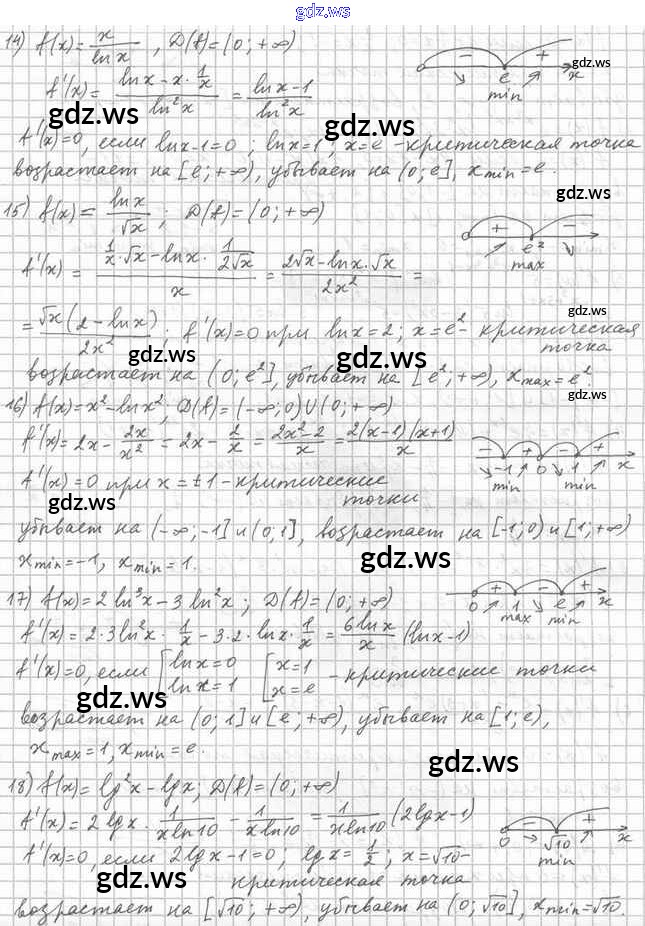 gdz.ws
14) f(x)= x/ln x , D(f)=(0;+∞)
− + gdz.ws
e x
min
f'(x)= (ln x − x·1/x)/ln²x = (ln x−1)/ln²x
gdz.ws gdz.ws
f'(x)=0, если ln x−1=0; ln x=1; x=e - критическая точка
возрастает на [e;+∞), убывает на (0;e], x min=e.
gdz.ws
15) f(x)= ln x/√x ; D(f)=(0;+∞)
+ −
e²
max
f'(x)= (1/x·√x−ln x·1/(2√x))/x = (2√x−ln x·√x)/2x² =
gdz.ws
= √x(2−ln x)/2x² ; f'(x)=0 при ln x=2; x=e² - критическая
точка
gdz.ws gdz.ws
возрастает на (0;e²], убывает на [e²;+∞), x max=e².
gdz.ws
16) f(x)=x²−ln x²; D(f)=(−∞;0)∪(0;+∞)
f'(x)=2x− 2x/x² = 2x− 2/x = (2x²−2)/x = 2(x−1)(x+1)/x
− + − +
−1 0 1 x
min min
f'(x)=0 при x=±1 - критические
точки
gdz.ws
убывает на (−∞;−1] и (0;1], возрастает на [−1;0) и [1;+∞)
gdz.ws
x min=−1, x min=1.
17) f(x)=2ln³x−3ln²x; D(f)=(0;+∞)
+ − +
0 1 e x
max min
f'(x)=2·3ln²x·1/x−3·2·ln x·1/x= 6ln x/x (ln x−1)
gdz.ws
f'(x)=0, если [ln x=0 [x=1 - критические точки
ln x=1 x=e
gdz.ws
возрастает на (0;1] и [e;+∞), убывает на [1;e),
x max=1, x min=e.
gdz.ws
18) f(x)=lg²x−lg x; D(f)=(0;+∞)
f'(x)=2lg x· 1/(x ln10) − 1/(x ln10) = 1/(x ln10) (2lg x−1)
− +
0 √10 x
min
f'(x)=0, если 2lg x−1=0; lg x=1/2; x=√10-
gdz.ws gdz.ws
критическая точка
возрастает на [√10;+∞), убывает на (0;√10], x min=√10.